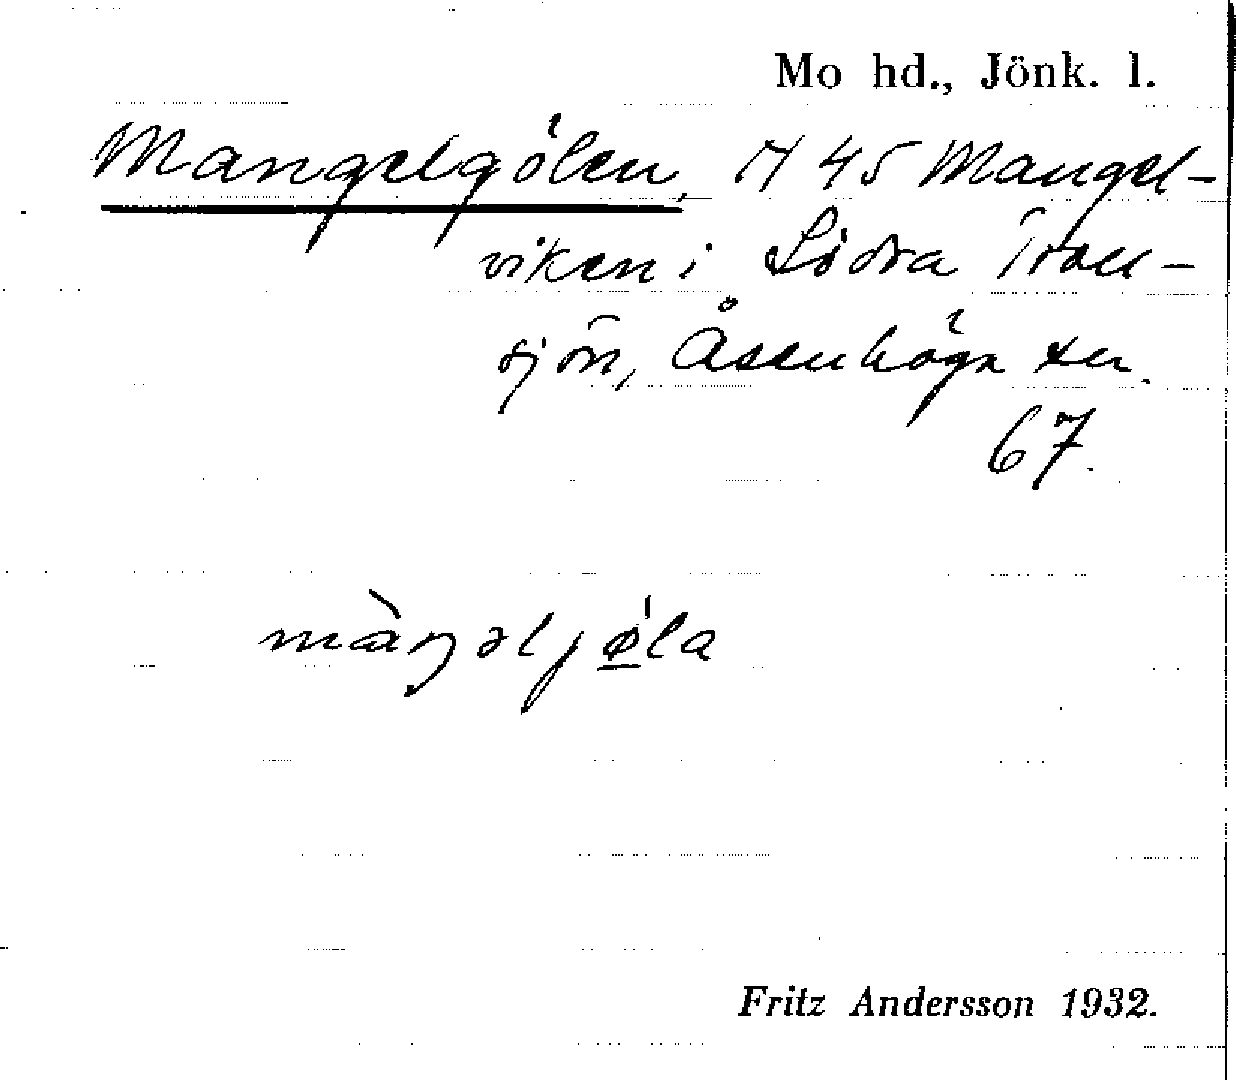 Mo hd., Jönk. l.
Mangelgölen, H 45 Mangel-
viken i Södra Troll-
sjön, Åsenhöga sn.
67.
màŋəljøla
Fritz Andersson 1932.